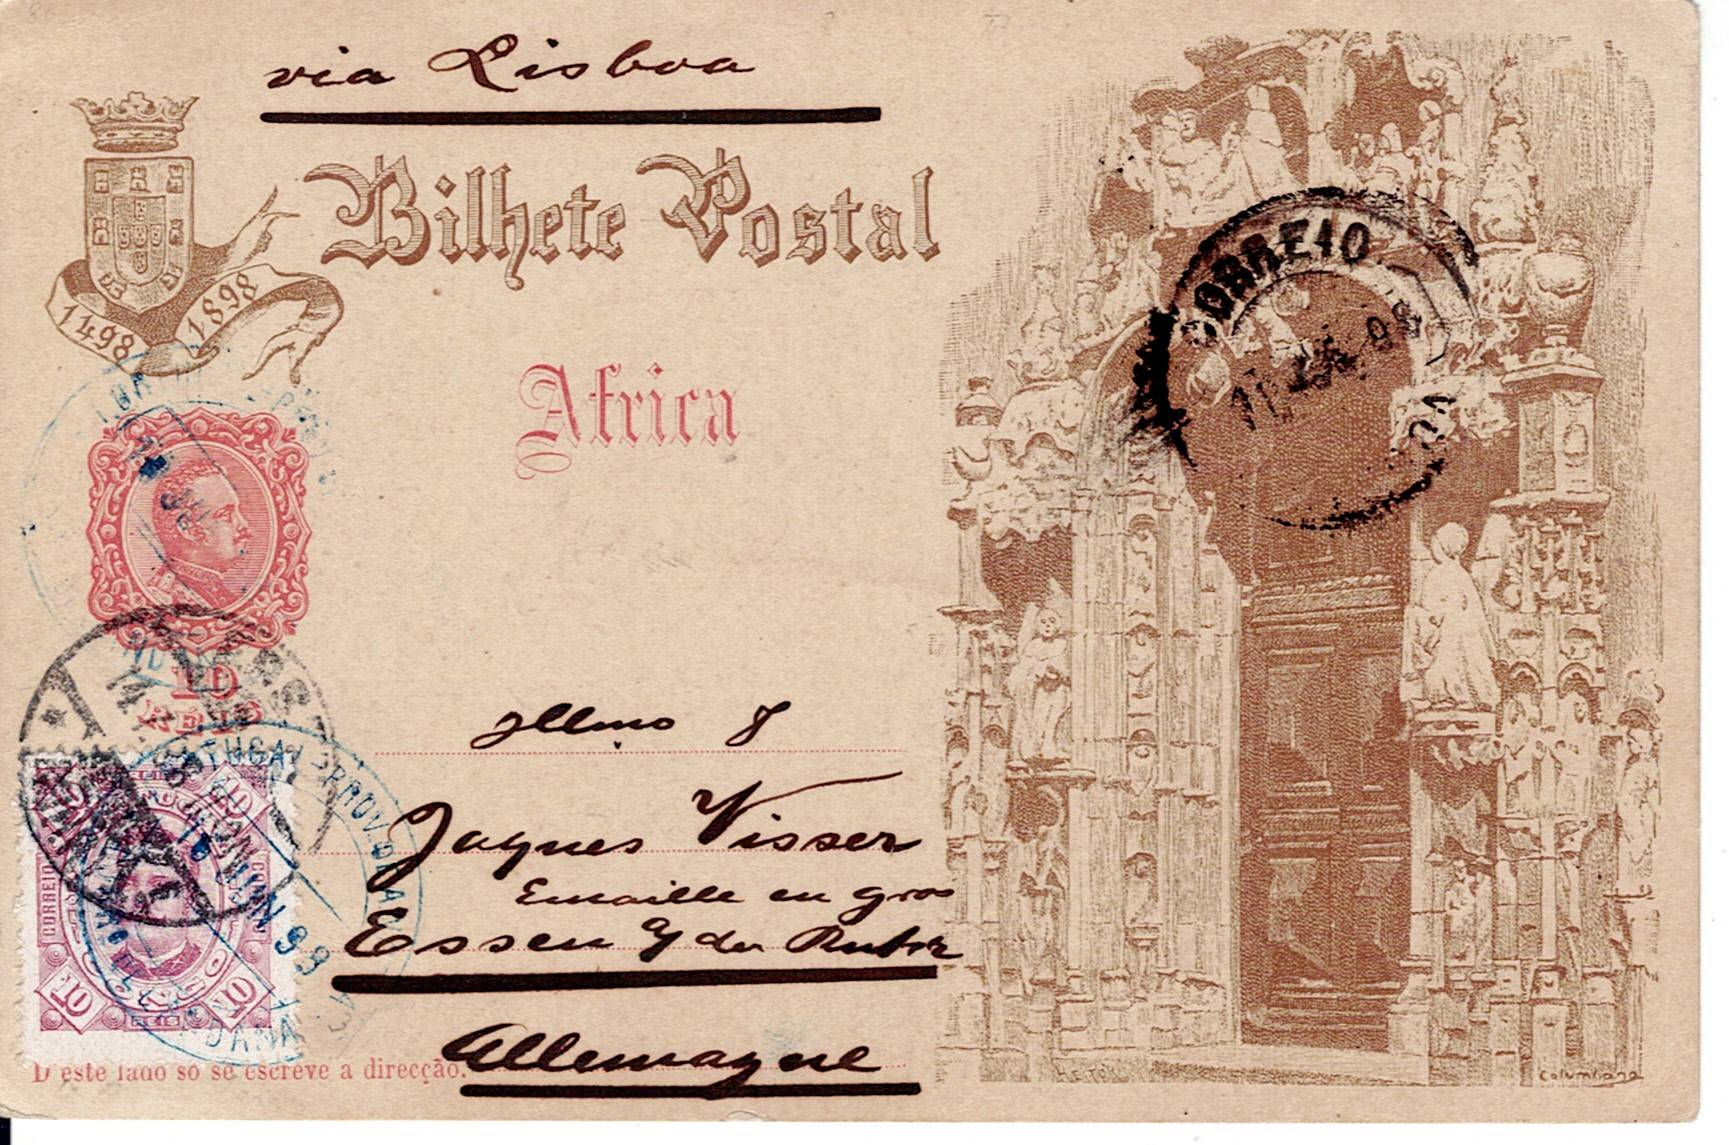 via Lisboa
Bilhete Postal
1498 1898
Africa
CORREIO
98
10
RÉIS
Illmo S
Jaques Visser
Emaille en gros
Essen a/ der Ruhr
Allemagne
PORTUGAL PROV. DA
CORREIO
CONGO
10 10
REIS
D'este lado só se escreve a direcção.
Columbano